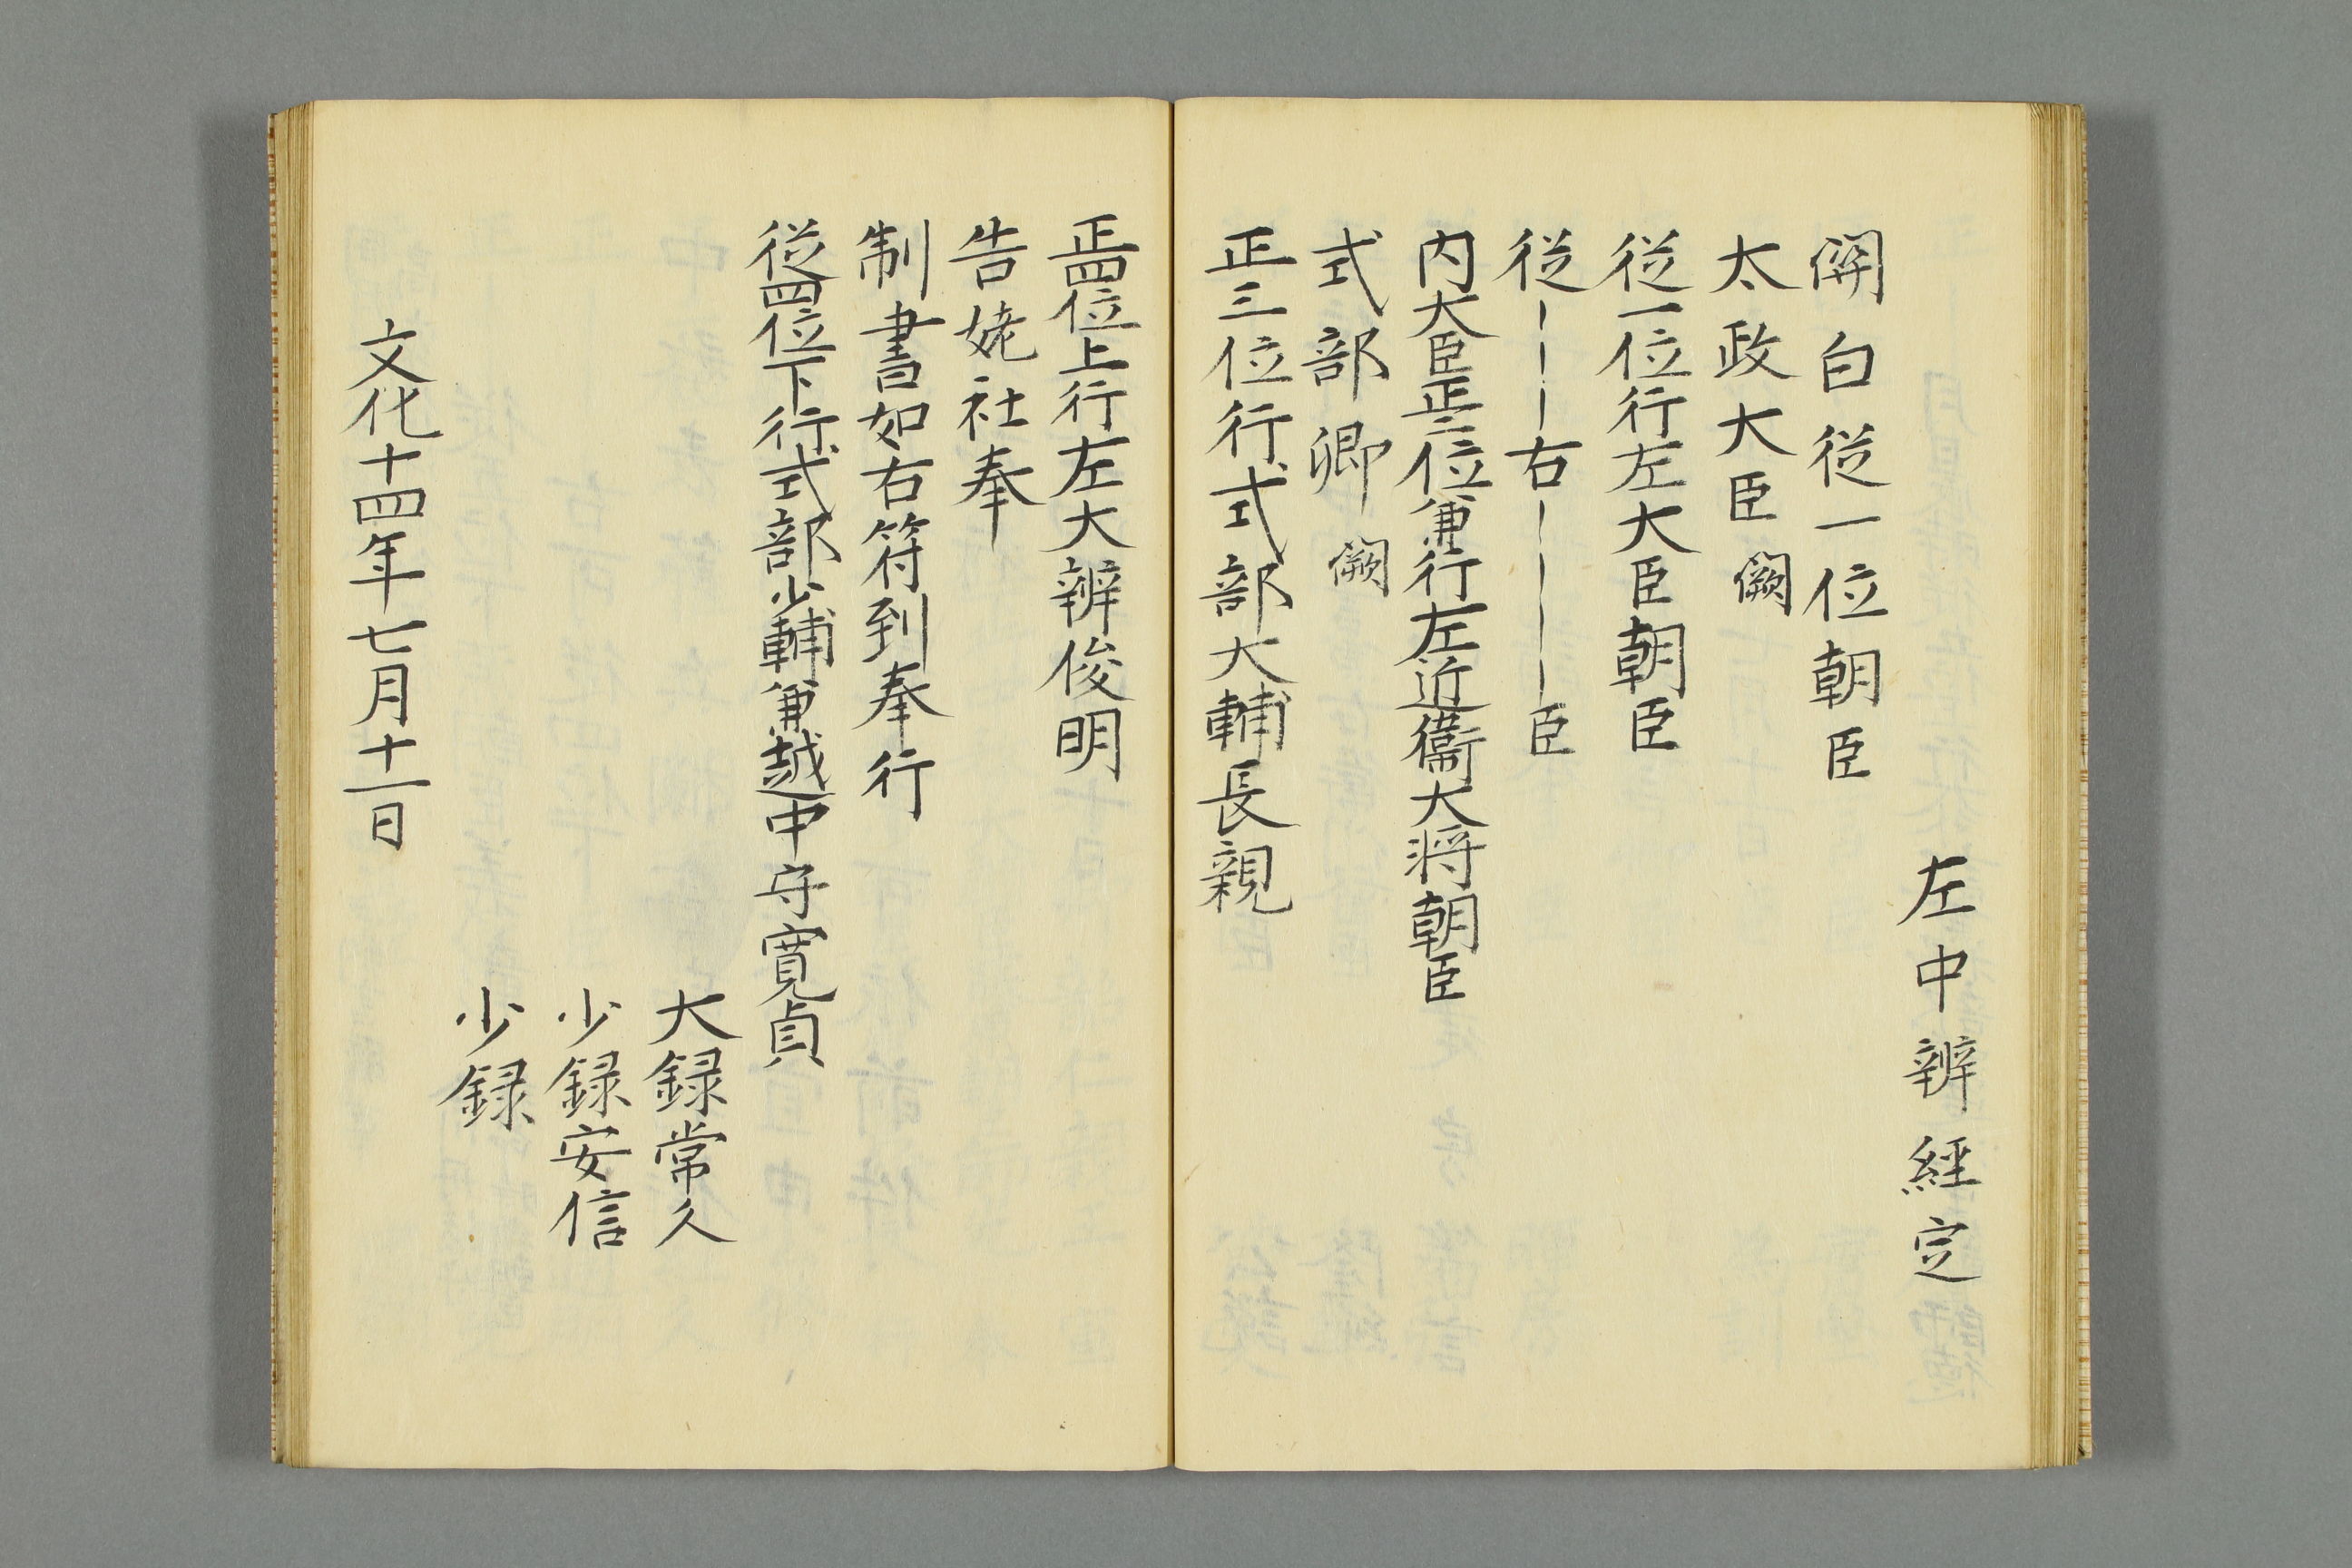 左中辨經定
関白従一位朝臣
太政大臣闕
従一位行左大臣朝臣
従｜｜｜右｜｜｜｜臣
内大臣正二位兼行左近衞大将朝臣
式部卿闕
正三位行式部大輔長親
正四位上行左大辨俊明
告姥社奉
制書如右符到奉行
従四位下行式部少輔兼越中守寛貞
大録常久
少録安信
少録
文化十四年七月十一日